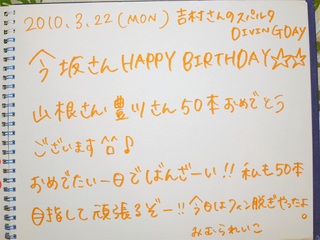 2010.3.22(MON) 吉村さんのスパルタ
DIVING DAY
今坂さん HAPPY BIRTHDAY☆☆
山根さん、豊川さん50本おめでとう
ございます^o^♪
おめでたい一日でばんざーい!! 私も50本
目指して頑張るぞー!! 今日はフィン脱ぎやったよ。
みむられいこ